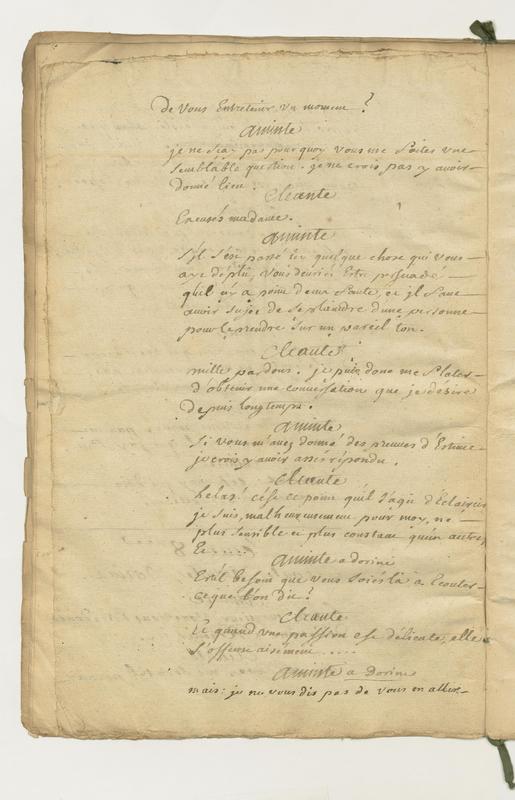 de vous Entretenir un moment ?
aminte
je ne sçay pas pourquoy vous me faites une
semblable question. je ne crois pas y avoir
donné lieu.
Cleante
Excusés madame.
aminte
s'jl s'est passé icy quelque chose qui vous
aye déplu, vous devriés Estre persuadé
qu'il n'y a point de ma faute, et jl faut
avoir sujet de se plaindre d'une personne
pour le prendre sur un pareil ton.
Cleante
mille pardons. je puis donc me flater
d'obtenir une conversation que je désire
depuis longtemps.
aminte
si vous m'avez donné des preuves d'Estime
je crois y avoir assés répondu.
Cleante
helas! c'est ce point qu'il s'agit d'Eclaircir
je suis, malheureusement pour moy, né
plus sensible et plus constant qu'un autre,
Et
aminte a dorine
Est'il besoin que vous soiés là a Ecouter
ce que l'on dit ?
Cleante
Et quand une passion est délicate, elle
s'offense aisément .....
aminte a Dorine
mais: je ne vous dis pas de vous en aller